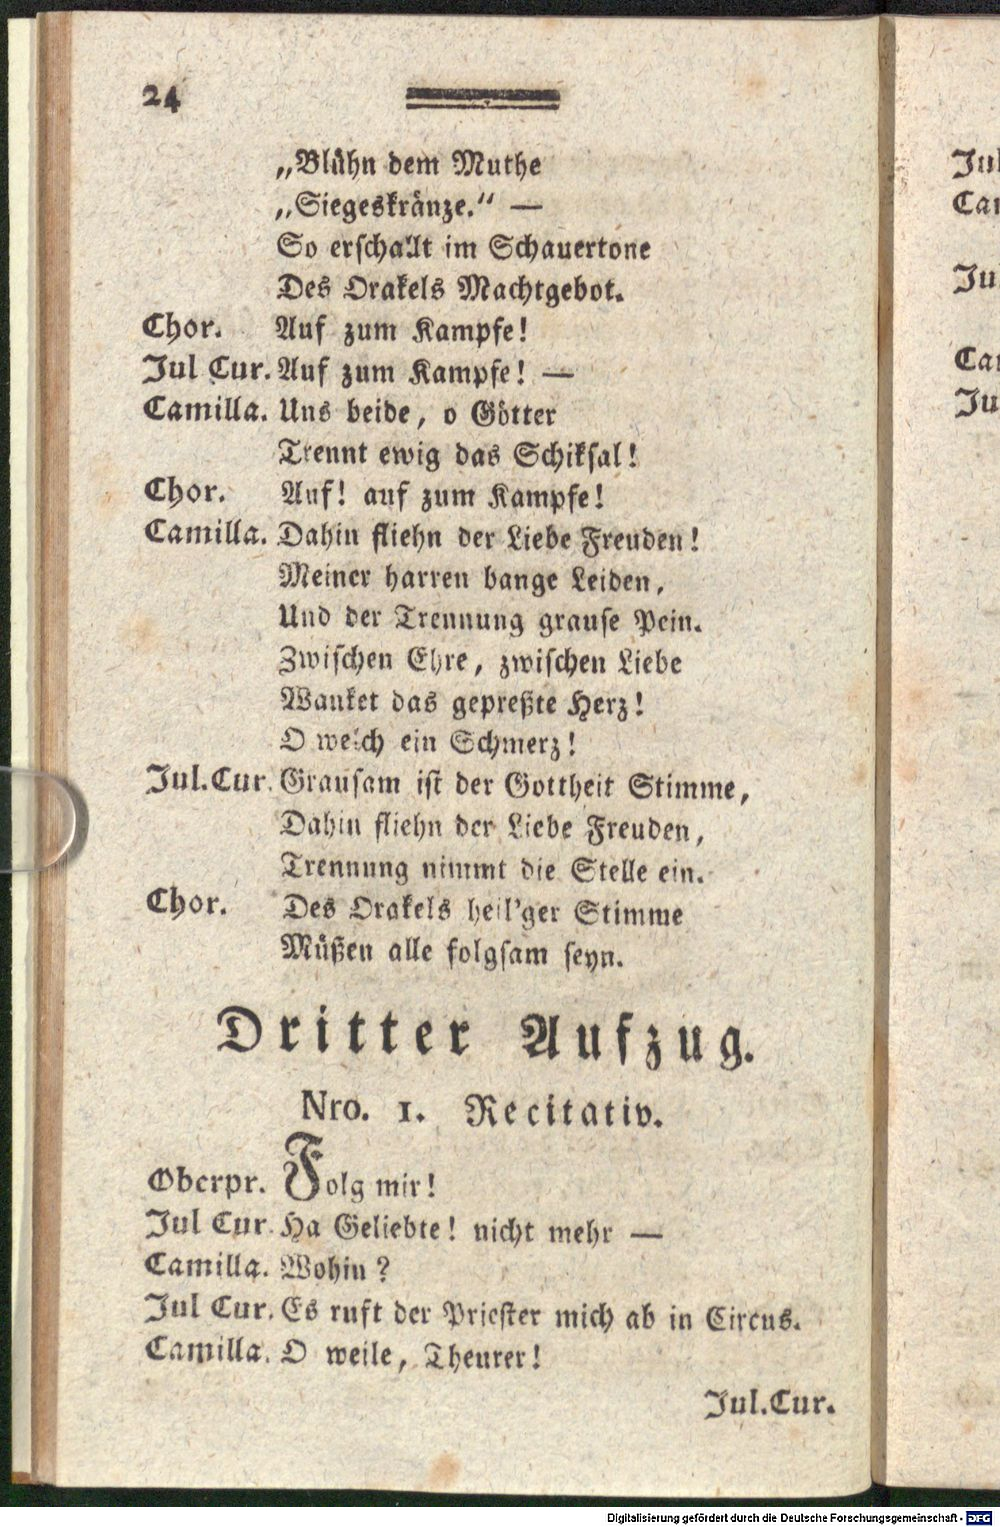 24
„Blühn dem Muthe
„Siegeskränze.“ —
So erschallt im Schauertone
Des Orakels Machtgebot.
Chor. Auf zum Kampfe!
Jul Cur. Auf zum Kampfe! —
Camilla. Uns beide, o Götter
Trennt ewig das Schiksal!
Chor. Auf! auf zum Kampfe!
Camilla. Dahin fliehn der Liebe Freuden!
Meiner harren bange Leiden,
Und der Trennung grause Pein.
Zwischen Ehre, zwischen Liebe
Wanket das gepreßte Herz!
O welch ein Schmerz!
Jul.Cur. Grausam ist der Gottheit Stimme,
Dahin fliehn der Liebe Freuden,
Trennung nimmt die Stelle ein.
Chor. Des Orakels heil'ger Stimme
Müßen alle folgsam seyn.
Dritter Aufzug.
Nro. 1. Recitativ.
Oberpr. Folg mir!
Jul Cur. Ha Geliebte! nicht mehr —
Camilla. Wohin?
Jul Cur. Es ruft der Priester mich ab in Circus.
Camilla. O weile, Theurer!
Jul.Cur.
Jul
Cam
Jul
Cam
Ju
Digitalisierung gefördert durch die Deutsche Forschungsgemeinschaft - DFG